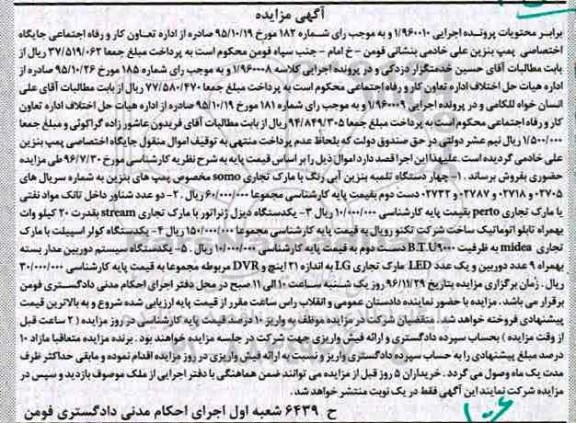 آگهی مزایده
برابر محتویات پرونده اجرایی ۱/۹۶۰۰۱۰ و به موجب رای شماره ۱۸۲ مورخ ۹۵/۱۰/۱۹ صادره از اداره تعاون کار و رفاه اجتماعی جایگاه
اختصاصی پمپ بنزین علی خادمی بنشانی فومن - خ امام - جنب سپاه فومن محکوم است به پرداخت مبلغ جمعا ۳۷/۵۱۹/۰۶۲ ریال از
بابت مطالبات آقای حسین خدمتگزار دزدکی و در پرونده اجرایی کلاسه ۱/۹۶۰۰۰۸ و به موجب رای شماره ۱۸۵ مورخ ۹۵/۱۰/۲۶ صادره از
اداره هیات حل اختلاف اداره تعاون کار و رفاه اجتماعی محکوم است به پرداخت مبلغ جمعا ۷۷/۵۸۰/۴۷۰ ریال از بابت مطالبات آقای علی
انسان خواه للکامی و در پرونده اجرایی ۱/۹۶۰۰۰۹ و به موجب رای شماره ۱۸۱ مورخ ۹۵/۱۰/۱۹ صادره از اداره هیات حل اختلاف اداره تعاون
کار و رفاه اجتماعی محکوم است به پرداخت مبلغ جمعا ۹۴/۸۴۹/۳۰۵ ریال از بابت مطالبات آقای فریدون عاشور زاده گراکوئی و مبلغ جمعا
۱/۵۰۰/۰۰۰ ریال نیم عشر دولتی در حق صندوق دولت که بلحاظ عدم پرداخت منتهی به توقیف اموال منقول جایگاه اختصاصی پمپ بنزین
علی خادمی گردیده است.علیهذا این اجرا قصد دارد اموال ذیل را بر اساس قیمت پایه به شرح نظریه کارشناسی مورخ ۹۶/۷/۳۰ طی مزایده
حضوری بفروش برساند . ۱- چهار دستگاه تلمبه بنزین آبی رنگ با مارک تجاری somo مخصوص پمپ های بنزین به شماره سریال های
۰۲۷۰۵ و ۰۲۷۱۸ و ۰۲۷۸۷ و ۰۲۷۳۲ دست دوم بقیمت پایه کارشناسی مجموعا ۶۰/۰۰۰/۰۰۰ ریال .۲- دو عدد شناور داخل تانک مواد نفتی
با مارک تجاری perto بقیمت پایه کارشناسی ۱۰/۰۰۰/۰۰۰ ریال ۳- یکدستگاه دیزل ژنراتور با مارک تجاری stream بقدرت ۲۰ کیلو وات
بهمراه تابلو اتوماتیک ساخت شرکت تکنو رویال به قیمت پایه کارشناسی مجموعا ۱۵۰/۰۰۰/۰۰۰ ریال ۴- یکدستگاه کولر اسپیلت با مارک
تجاری midea به ظرفیت B.T.U۹۰۰۰ دست دوم به قیمت پایه کارشناسی ۱۰/۰۰۰/۰۰۰ ریال . ۵- یکدستگاه سیستم دوربین مدار بسته
بهمراه ۹ عدد دوربین و یک عدد LED مارک تجاری LG به اندازه ۲۱ اینچ و DVR مربوطه مجموعا به قیمت پایه کارشناسی ۳۰/۰۰۰/۰۰۰
ریال . زمان برگزاری مزایده بتاریخ ۹۶/۱۱/۲۹ روز یک شنبه ساعت ۱۰ الی ۱۱ صبح در محل دفتر اجرای احکام مدنی دادگستری فومن
برقرار می باشد . مزایده با حضور نماینده دادستان عمومی و انقلاب راس ساعت مقرر از قیمت پایه ارزیابی شده شروع و به بالاترین قیمت
پیشنهادی فروخته خواهد شد. متقاضیان شرکت در مزایده موظف به واریز ۱۰ درصد قیمت پایه کارشناسی در روز مزایده ( ۲ ساعت قبل
از وقت مزایده ) بحساب سپرده دادگستری و ارائه فیش واریزی مجوز شرکت در جلسه مزایده خواهند بود . برنده مزایده متعاقبا مازاد ۱۰
درصد مبلغ پیشنهادی را به حساب سپرده دادگستری واریز و نسبت به ارائه فیش واریزی در روز مزایده اقدام نموده و مابقی حداکثر ظرف
مدت یک ماه وصول می گردد . خریداران ۵ روز قبل از مزایده می توانند ضمن هماهنگی با دفتر اجرایی از ملک موصوف بازدید و سپس در
مزایده شرکت نمایند این آگهی فقط در یک نوبت منتشر خواهد شد.
ح ۶۴۳۹ شعبه اول اجرای احکام مدنی دادگستری فومن
۱۰۶